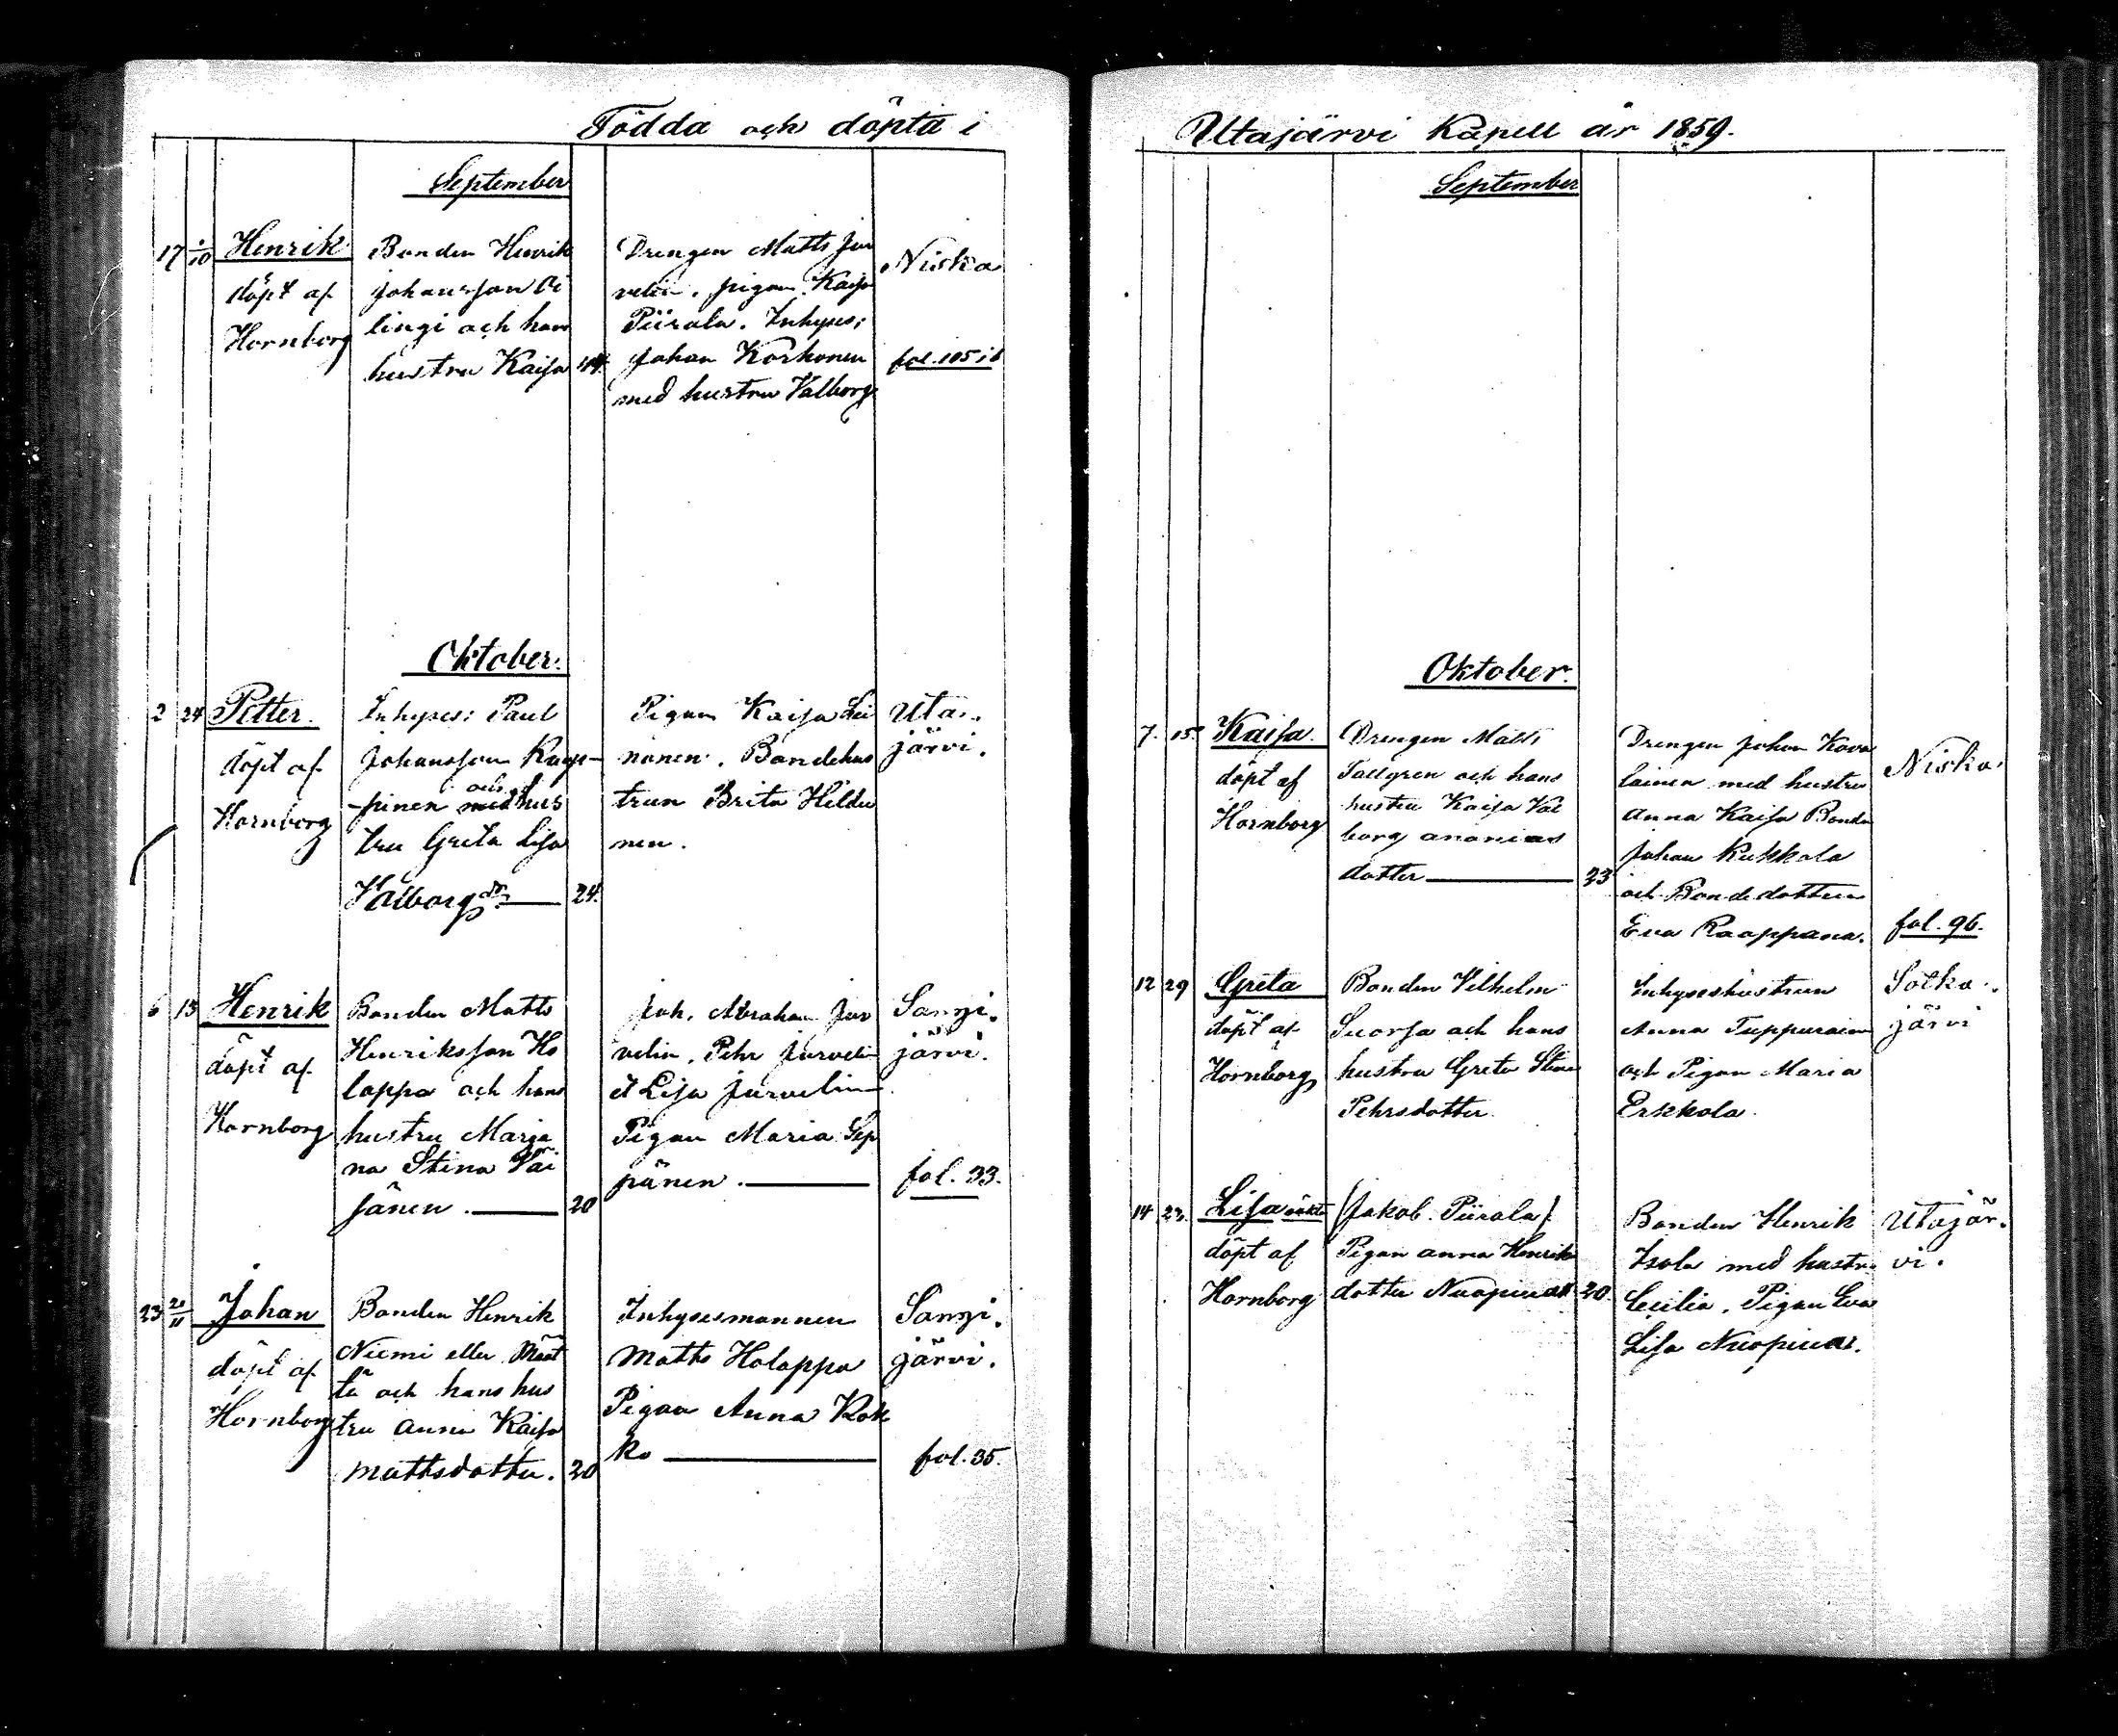 Födda och döpta i
September
17 1/10 Henrik
döpt af
Hornborg
Bonden Henrik
Johansson Oi
lingi och hans
hustru Kaisa 44.
Drengen Matts Jur
velin. pigan Kaisa
Piirala. Inhyses:
Johan Korhonen
med hustru Valborg
Niska
fol. 105
Oktober.
2 24 Petter.
döpt af
Hornborg
Inhyses: Paul
Johansson
pinen och hus
tru Greta Lisa
Valborgsdr 24.
Pigan Kaisa Lei
nonen. Bondehus
trun Brita Heldu
nen.
Uta-
järvi.
6 13 Henrik
döpt af
Hornborg
Bonden Matts
Henriksson Ho
lappa och hans
hustru Marja
na Stina Väi
sänen. 20
Joh. Abraham Jur
velin, Pehr Jurvelin
et Lisa Jurvelin
Pigan Maria Sep
pänen.
Sangi-
järvi.
fol. 33.
23 20/11 Johan
döpt af
Hornborg
Bonden Henrik
Niemi eller Määt
tä och hans hus
tru Anna Kaisa
Mattsdotter. 20
Inhysesmannen
Matts Holappa
Pigan Anna Kok
ko
Sangi-
järvi.
fol. 35.
Utajärvi Kapell år 1859.
September
Oktober.
7. 15. Kaisa.
döpt af
Hornborg
Drengen Matts
Tallgren och hans
hustru Kaisa Val
borg Ananias
dotter 23
Drengen Johan Kova
lainen med hustru
Anna Kaisa Bonden
Johan Kukkola
och Bondedottern
Eva Raappana.
Niska.
fol. 96.
12 29 Greta
döpt af
Hornborg
Bonden Vilhelm
Suorsa och hans
hustru Greta Stina
Pehrsdotter.
Inhyseshustrun
Anna Tuppurainen
och Pigan Maria
Erkkola.
Sotka-
järvi
14 23. Lisa oäkta
döpt af
Hornborg
/Jakob Piirala/
Pigan Anna Henriks
dotter Nuopinen 20.
Bonden Henrik
Isola med hustru
Cecilia. Pigan Eva
Lisa Nuopinen.
Utajär-
vi.